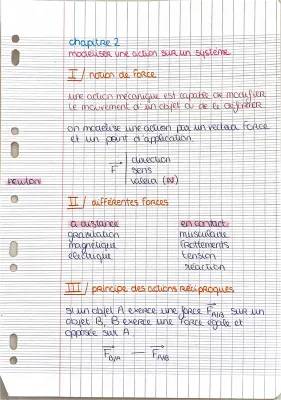 chapitre 2
modéliser une action sur un système
I / notion de force
une action mécanique est capable de modifier
le mouvement d'un objet ou de le déformer
on modélise une action par un vecteur force
et un point d'application.
F | direction
sens
valeur (N)
newton
II / différentes forces
à distance
gravitation
magnétique
électrique
en contact
musculaire
frottements
tension
réaction
III / principe des actions réciproques
si un objet A exerce une force F A/B sur un
objet B, B exerce une force égale et
opposée sur A
F B/A — F A/B